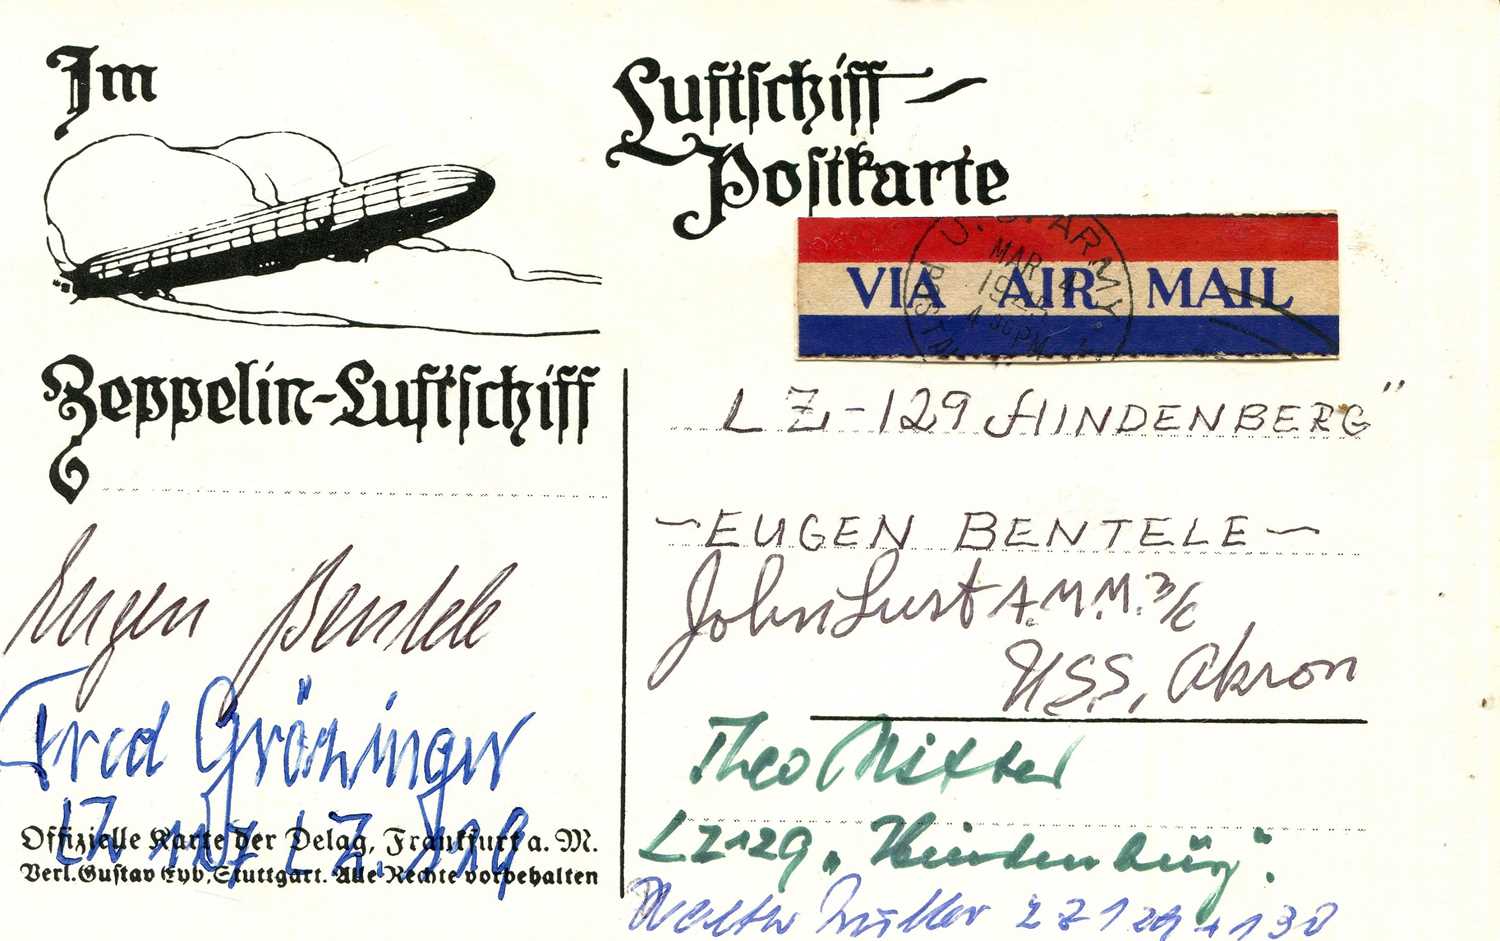 Im
Zeppelin-Luftschiff
Eugen Bentele
Fred Grözinger
LZ 127 LZ. 129
Offizielle Karte der Delag, Frankfurt a. M.
Verl. Gustav Eyb, Stuttgart. Alle Rechte vorbehalten
Luftschiff-
Postkarte
VIA AIR MAIL
U. S. ARMY
MAR 4
4 30 PM
LZ-129 HINDENBERG"
~EUGEN BENTELE~
John Lust A.M.M. 3/c
USS, Akron
Theo Ritter
LZ129 „Hindenbürg".
LZ 129 + 130